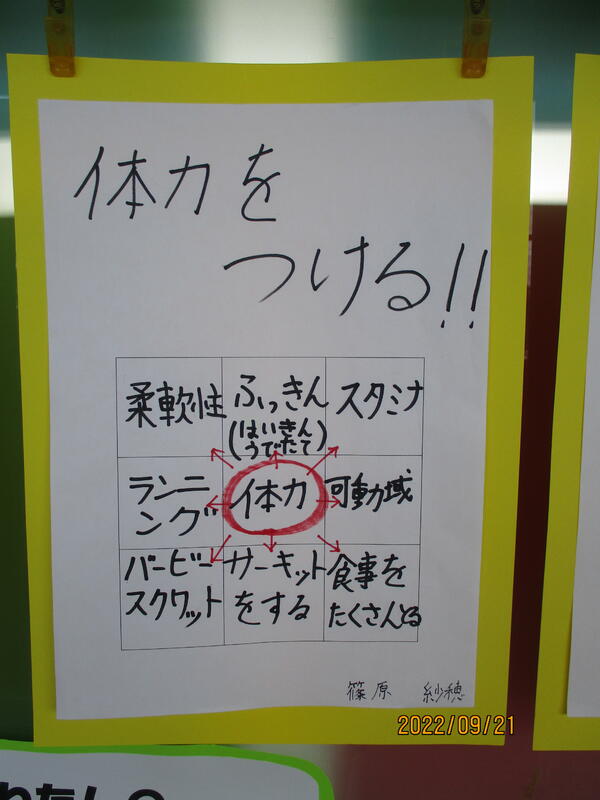 体力を
つける!!
柔軟性
ふっきん
(はいきん
うでたて)
スタミナ
ランニ
ング
体力
可動域
バービー
スクワット
サーキット
をする
食事を
たくさんとる
篠原 紗穂
2022/09/21
わたしの